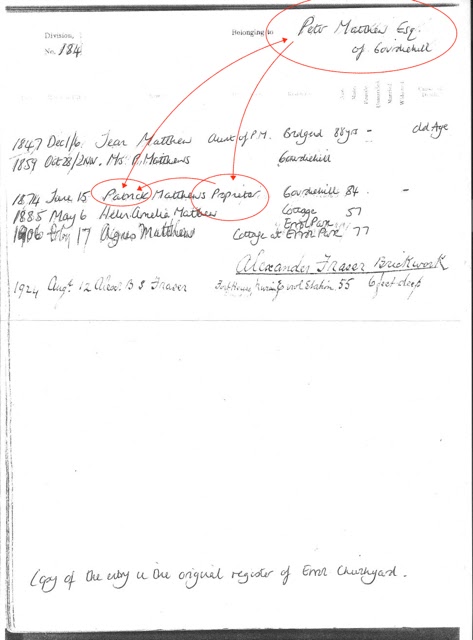 Division,
Belonging to Peter Matthew Esqr
No. 184
of Gourdiehill
1847 Dec 1/6. Jean Matthew Aunt of P.M. Bridgend 88yrs - Old Age
1859 Oct 28/2Nov. Mrs Matthews Gourdiehill
1874 June 15 Patrick Matthews Proprietor. Gourdiehill 84. -
1885 May 6 Helen Amelia Mathew Cottage 57
Errol Park
1906 17 Agnes Matthews Cottage at Errol Park 77
Alexander Fraser Brickwork
1924 Augt 12 B S Fraser Errol Station, 55 6 feet deep
Copy of the entry in the original register of Errol Churchyard.